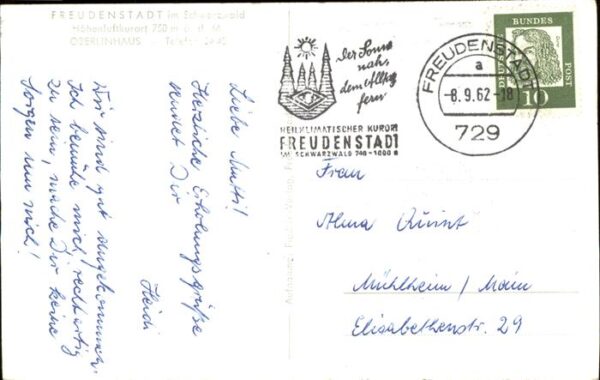 FREUDENSTADT im Schwarzwald
Höhenluftkurort 750 m ü. d. M.
OBERLINHAUS - Telefon 2440
Liebe Mutti!
Herzliche Erholungsgrüße
sendet Dir
Heidi
Wir sind gut angekommen.
Ich bemühe mich, rechtzeitig
zu sein, mache Dir keine
Sorgen um mich!
Der Sonne
nah,
dem Alltag
fern
HEILKLIMATISCHER KURORT
FREUDENSTADT
IM SCHWARZWALD 740-1000 m
FREUDENSTADT
a
-8.9.62-18
729
DEUTSCHE
BUNDES
POST
10
Frau
Alma Quint
Mühlheim / Main
Elisabethenstr. 29